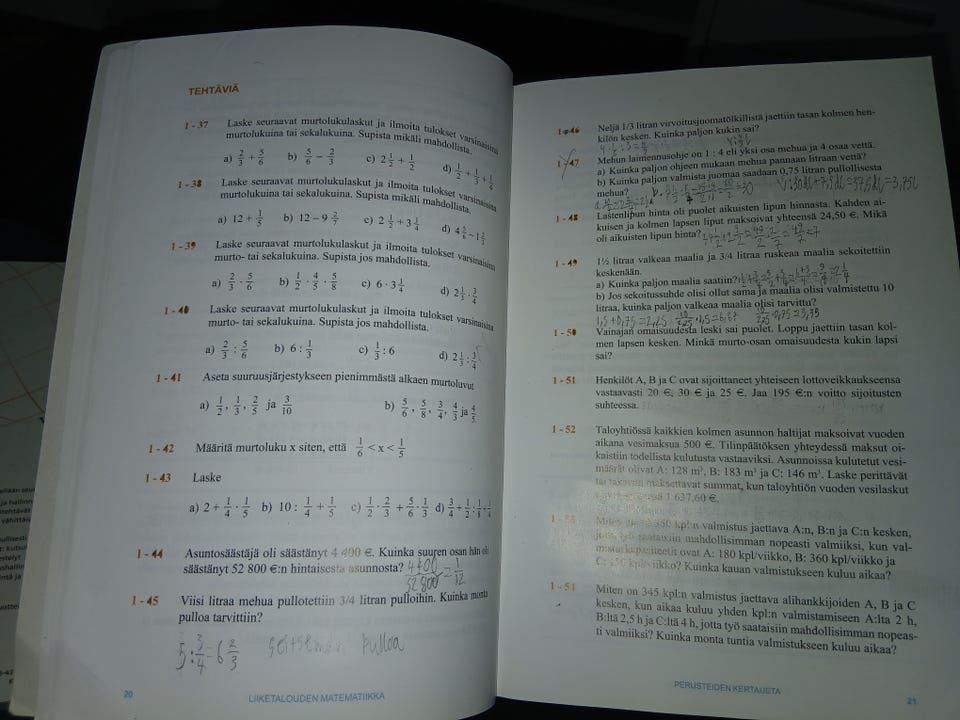 TEHTÄVIÄ
1-37 Laske seuraavat murtolukulaskut ja ilmoita tulokset varsinaisina
murtolukuina tai sekalukuina. Supista mikäli mahdollista.
a) 2/3 + 5/6 b) 5/6 - 2/3 c) 2 1/2 + 1/2 d) 1/2 + 1/3 + 1/4
1-38 Laske seuraavat murtolukulaskut ja ilmoita tulokset varsinaisina
murtolukuina tai sekalukuina. Supista mikäli mahdollista.
a) 12 + 1/5 b) 12 - 9 2/7 c) 2 1/2 + 3 1/4 d) 4 5/6 - 1 2/3
1-39 Laske seuraavat murtolukulaskut ja ilmoita tulokset varsinaisina
murto- tai sekalukuina. Supista jos mahdollista.
a) 2/3 · 5/6 b) 1/2 · 4/5 · 5/8 c) 6 · 3 1/4 d) 2 1/3 · 3/4
1-40 Laske seuraavat murtolukulaskut ja ilmoita tulokset varsinaisina
murto- tai sekalukuina. Supista jos mahdollista.
a) 2/3 : 5/6 b) 6 : 1/3 c) 1/3 : 6 d) 2 1/3 : 3/4
1-41 Aseta suuruusjärjestykseen pienimmästä alkaen murtoluvut
a) 1/2, 1/3, 2/5 ja 3/10 b) 5/6, 5/8, 3/4, 4/3 ja 4/5
1-42 Määritä murtoluku x siten, että 1/6 < x < 1/5
1-43 Laske
a) 2 + 1/4 · 1/5 b) 10 : 1/4 + 1/5 c) 1/2 · 2/3 + 5/6 · 1/3 d) 3/4 + 1/2 : 1/8 + 1/4
1-44 Asuntosäästäjä oli säästänyt 4 400 €. Kuinka suuren osan hän oli
säästänyt 52 800 €:n hintaisesta asunnosta? 4400/52800 = 1/12
1-45 Viisi litraa mehua pullotettiin 3/4 litran pulloihin. Kuinka monta
pulloa tarvittiin?
5 : 3/4 = 6 2/3 seitsemän pulloa
20
LIIKETALOUDEN MATEMATIIKKA
1-46 Neljä 1/3 litran virvoitusjuomatölkillistä jaettiin tasan kolmen hen-
kilön kesken. Kuinka paljon kukin sai?
1-47 Mehun laimennusohje on 1 : 4 eli yksi osa mehua ja 4 osaa vettä.
a) Kuinka paljon ohjeen mukaan mehua pannaan litraan vettä?
b) Kuinka paljon valmista juomaa saadaan 0,75 litran pullollisesta
mehua?
V: 30dl+7,5dl=37,5dl=3,75l
1-48 Lastenlipun hinta on puolet aikuisten lipun hinnasta. Kahden ai-
kuisen ja kolmen lapsen liput maksoivat yhteensä 24,50 €. Mikä
oli aikuisten lipun hinta?
1-49 1½ litraa valkeaa maalia ja 3/4 litraa ruskeaa maalia sekoitettiin
keskenään.
a) Kuinka paljon maalia saatiin?
b) Jos sekoitussuhde olisi ollut sama ja maalia olisi valmistettu 10
litraa, kuinka paljon valkeaa maalia olisi tarvittu?
1,5+0,75=2,25
1-50 Vainajan omaisuudesta leski sai puolet. Loppu jaettiin tasan kol-
men lapsen kesken. Minkä murto-osan omaisuudesta kukin lapsi
sai?
1-51 Henkilöt A, B ja C ovat sijoittaneet yhteiseen lottoveikkaukseensa
vastaavasti 20 €, 30 € ja 25 €. Jaa 195 €:n voitto sijoitusten
suhteessa.
1-52 Taloyhtiön kaikkien kolmen asunnon haltijat maksoivat vuoden
aikana vesimaksua 500 €. Tilinpäätöksen yhteydessä maksut oi-
kaistiin todellista kulutusta vastaaviksi. Asunnoissa kulutetut vesi-
määrät olivat A: 128 m³, B: 183 m³ ja C: 146 m³. Laske perittävät
tai takaisin maksettavat summat, kun taloyhtiön vuoden vesilaskut
1 637,60 €.
Miten kpl:n valmistus jaettava A:n, B:n ja C:n kesken,
jotta työ saataisiin mahdollisimman nopeasti valmiiksi, kun val-
mistuskapasiteetit ovat A: 180 kpl/viikko, B: 360 kpl/viikko ja
kpl/viikko? Kuinka kauan valmistukseen kuluu aikaa?
Miten on 345 kpl:n valmistus jaettava alihankkijoiden A, B ja C
kesken, kun aikaa kuluu yhden kpl:n valmistamiseen A:lta 2 h,
B:ltä 2,5 h ja C:ltä 4 h, jotta työ saataisiin mahdollisimman nopeas-
ti valmiiksi? Kuinka monta tuntia valmistukseen kuluu aikaa?
PERUSTEIDEN KERTAUSTA
21